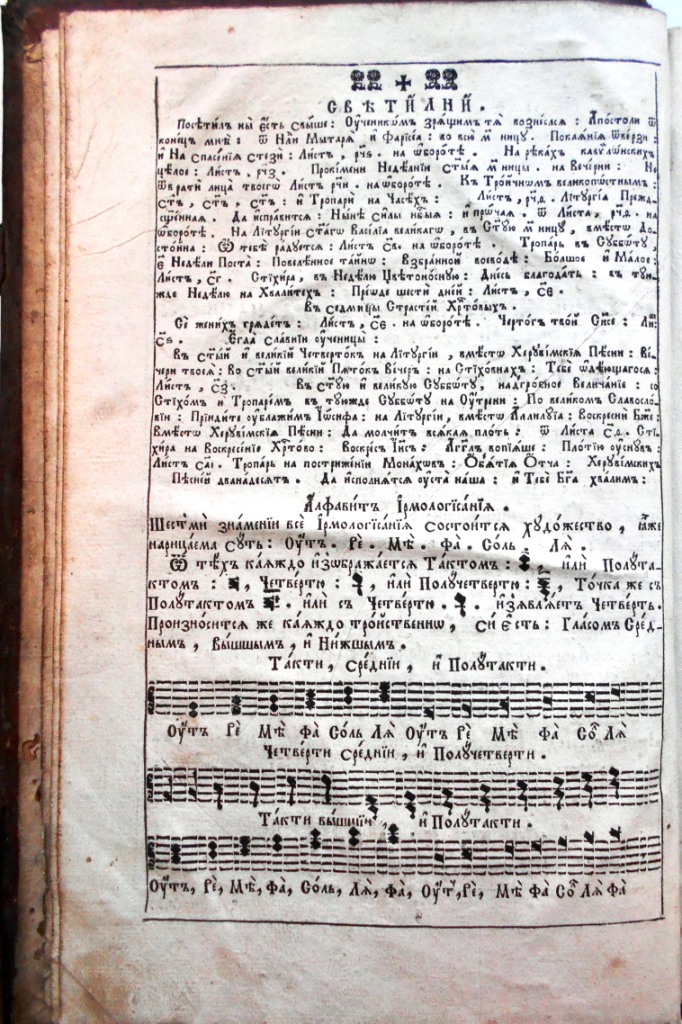 СВѢТИ́ЛНИ.
Посѣти́лъ ны̀ є҆́сть свы́ше: Оу҆чн҃икѡмъ зрѧ́щимъ тѧ̀ возне́слсѧ: А҆по́столи ѿ
коне́цъ мнѣ̀: ѿ Нⷣли Мытарѧ̀ и҆ Фарїсе́а: во всю̀ м҃ницу. Покаѧ́нїѧ ѿве́рзи:
и҆ На спасе́нїѧ стезѝ: Ли́стъ, рч҃ѕ. на ѡ҆боро́тѣ. На рѣка́хъ вавѷлѡ́нскихъ
цѣ́лое: Ли́стъ, рч҃з. Проки́мени Недѣ́лнїи ст҃ы́ѧ м҃ницы. на Вече́рни: Не
ѿвратѝ лица̀ твоегѡ̀ Ли́стъ рч҃и. на ѡ҆боро́тѣ. Къ Трⷪ҇ичнымъ великопо́стнымъ:
Ст҃ъ, ст҃ъ, ст҃ъ: и҆ Тропарѝ на Часѣ́хъ: Ли́стъ, рч҃ѳ. Лїтꙋргі́а Прежде-
сщ҃е́нная. Да и҆спра́витсѧ: Ны́нѣ си́лы нб҃ныѧ: и҆ прѡ́чаѧ. ѿ Листа̀, рч҃ѳ. на
ѡ҆боро́тѣ. На Лїтꙋргі́и ст҃а́гѡ Васі́лїа вели́кагѡ, въ Ст҃ꙋ́ю м҃ницꙋ, вмѣ́стѡ До-
сто́йна: Ѡ҆ тебѣ̀ ра́дꙋетсѧ: Ли́стъ с҃в. на ѡ҆боро́тѣ. Тропа́рь въ Сꙋббѡ́тꙋ,
є҃ Недѣ́ли Поста̀: Повелѣ́нное та́йнѡ: Взбра́нной воево́дѣ: Бо́лшое и҆ Ма́лое:
Ли́стъ, с҃г. Стїхи́ра, въ Недѣ́лю Цвѣтоно́снꙋю: Дне́сь благода́ть: въ тꙋ́ю-
жде Недѣ́лю на Хвали́техъ: Пре́жде шестѝ дне́й: Ли́стъ, с҃є.
Въ седми́цы Страсте́й Хрⷭ҇то́выхъ.
Сѐ жени́хъ грѧде́тъ: Ли́стъ, с҃є на ѡ҆боро́тѣ. Черто́гъ тво́й Сп҃се: Ли́:
с҃ѕ. Є҆гда̀ сла́внїи оу҆ченицы̀:
Въ ст҃ы́й и҆ вели́кїй Четверто́къ на Лїтꙋргі́и, вмѣ́стѡ Херꙋві́мскїѧ Пѣ́сни: Ве́-
чери твоеѧ̀: Во ст҃ы́й вели́кїй Пѧто́къ Ве́черъ: на Стїхо́внахъ: Тебѐ ѡ҆дѣ́ющагосѧ:
Ли́стъ, с҃з. Въ ст҃ꙋ́ю и҆ вели́кꙋю Сꙋббѡ́тꙋ, надгро́бное Велича́нїе: со
Стїхо́мъ и҆ Тропаре́мъ въ тꙋ́южде Сꙋббѡ́тꙋ на Оу҆́трени: По вели́комъ Славосло́-
вїи: Прїиди́те оу҆блажи́мъ І҆ѡ́сифа: на Лїтꙋргі́и, вмѣ́стѡ Аллилꙋ́їа: Воскреснѝ Бж҃е:
Вмѣ́стѡ Херꙋві́мскїѧ Пѣ́сни: Да молчи́тъ всѧ́каѧ пло́ть: ѿ Листа̀ с҃ѳ. Стї-
хи́ра на Воскресе́нїе Хрⷭ҇то́во: Воскре́съ І҆и҃съ: А҆́гг҃лъ вопїѧ́ше: Пло́тїю оу҆снꙋ́въ:
Ли́стъ са҃і. Тропа́рь на постриже́нїи Мона́хѡвъ: Ѡ҆б̾ѧ́тїѧ ѻ҆́тча: Херꙋві́мскихъ
Пѣ́сней двана́десѧть. Да и҆спо́лнѧтсѧ оу҆ста̀ на́ша: и҆ Тебѐ Бг҃а хва́лимъ:
А҆лфави́тъ І҆рмологїса́нїѧ.
Шестмѝ зна́менїи всѐ І҆рмологїса́нїѧ состои́тсѧ хꙋдо́жество, ꙗ҆́же
нарица́ема сꙋ́ть: Оу҆́тъ. Рѐ. Мѣ̀. Фа̀. Со́ль. Лѧ̀.
Ѿ тѣ́хъ ка́ѧждо и҆з̾ѡбража́етсѧ Та́ктомъ: , и҆лѝ Полꙋта́-
ктомъ: , Че́твертю: , и҆лѝ Полꙋче́твертю: , То́чка же съ
Полꙋта́ктомъ . и҆лѝ съ Че́твертю. . и҆з̾ѧвлѧ́етъ Че́тверть.
Произно́ситсѧ же ка́ѧждо тро́йственнѡ, сѝ є҆́сть: Гла́сомъ Сре́д-
нымъ, Вы́шшымъ, и҆ Ни́жшымъ.
Та́кти, сре́днїи, и҆ Полꙋта́кти.
Оу҆́тъ Рѐ Мѣ̀ Фа̀ Со́ль Лѧ̀ Оу҆́тъ Рѐ Мѣ̀ Фа̀ Соⷧ҇ Лѧ̀
Че́тверти сре́днїи, и҆ Полꙋче́тверти.
Та́кти вы́шшїи, и҆ Полꙋта́кти.
Оу҆́тъ, Рѐ, Мѣ̀, Фа̀, Со́ль, Лѧ̀, Фа̀, Оу҆́тъ, Рѐ, Мѣ̀ Фа̀ Соⷧ҇ Лѧ̀ Фа̀